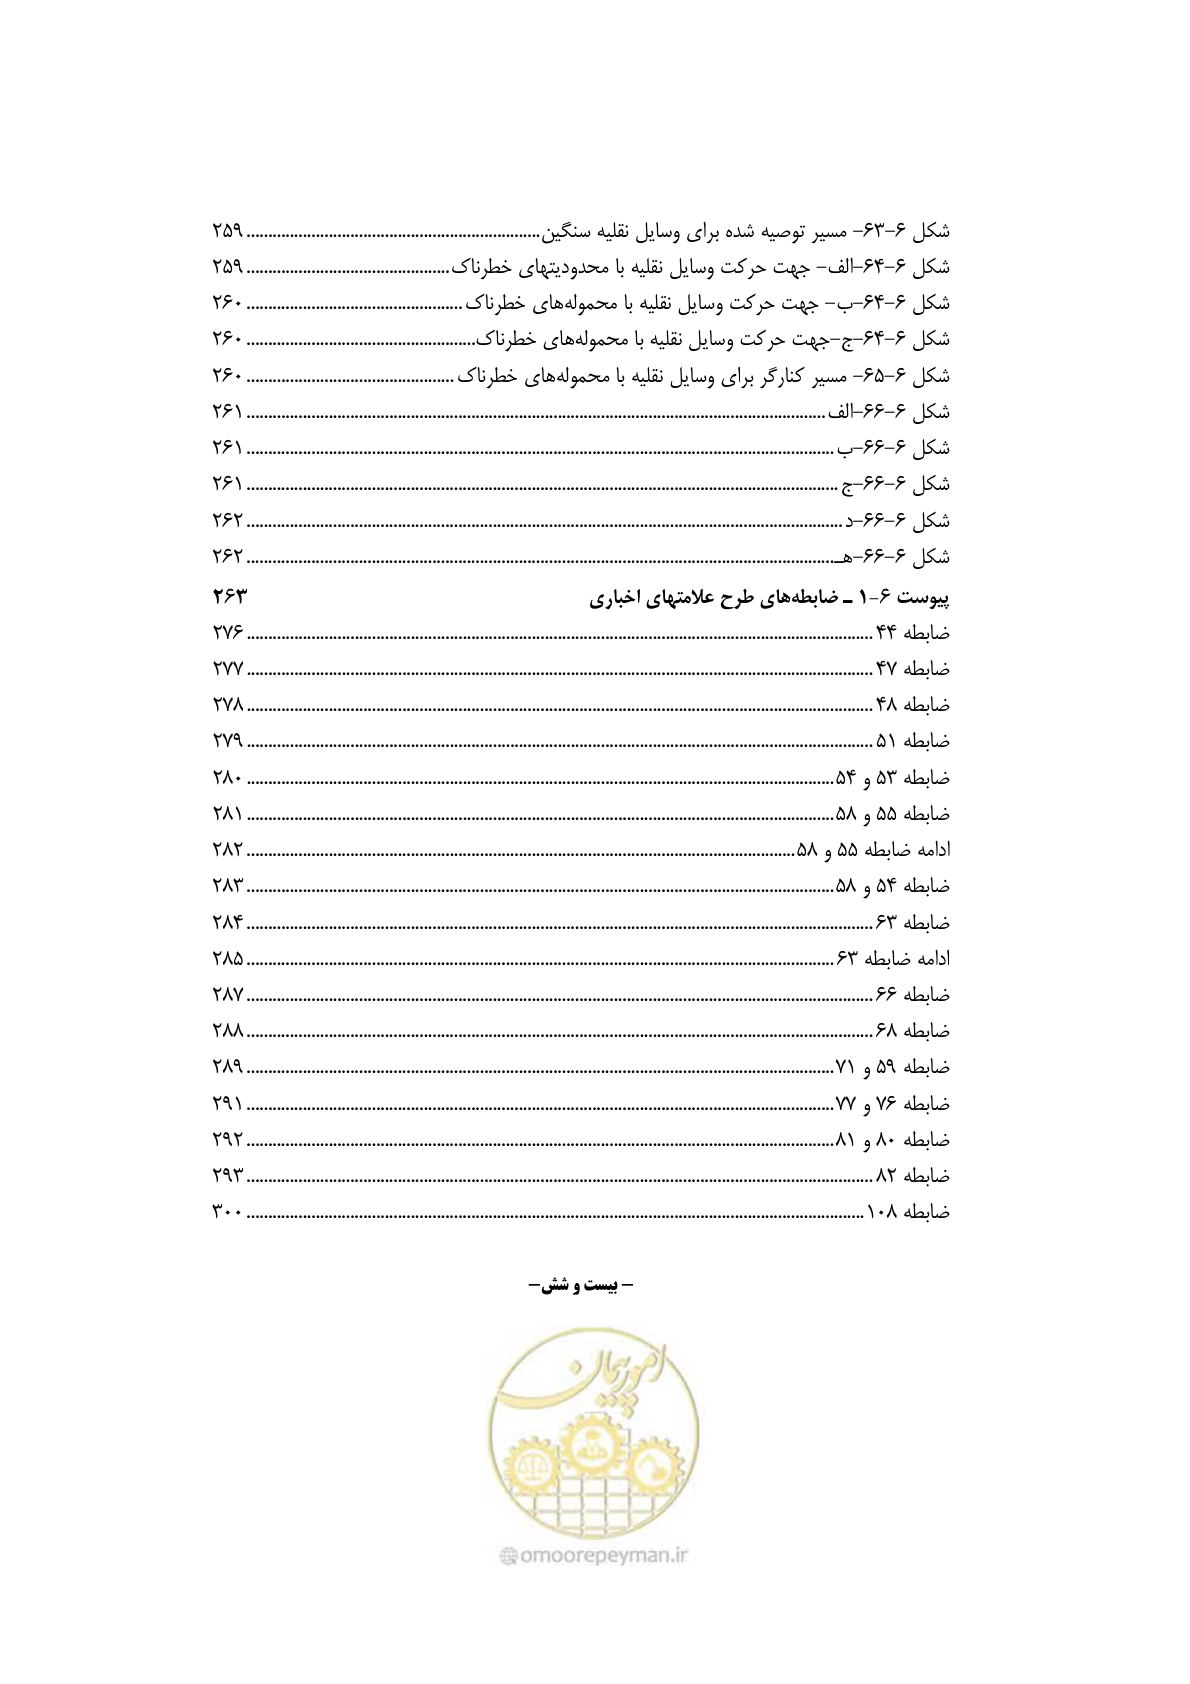 شکل ۶-۶۳- مسیر توصیه شده برای وسایل نقلیه سنگین ........ ۲۵۹
شکل ۶-۶۴-الف- جهت حرکت وسایل نقلیه با محدودیتهای خطرناک ........ ۲۵۹
شکل ۶-۶۴-ب- جهت حرکت وسایل نقلیه با محموله‌های خطرناک ........ ۲۶۰
شکل ۶-۶۴-ج-جهت حرکت وسایل نقلیه با محموله‌های خطرناک ........ ۲۶۰
شکل ۶-۶۵- مسیر کنارگر برای وسایل نقلیه با محموله‌های خطرناک ........ ۲۶۰
شکل ۶-۶۶-الف ........ ۲۶۱
شکل ۶-۶۶-ب ........ ۲۶۱
شکل ۶-۶۶-ج ........ ۲۶۱
شکل ۶-۶۶-د ........ ۲۶۲
شکل ۶-۶۶-هـ ........ ۲۶۲
پیوست ۶-۱ ـ ضابطه‌های طرح علامتهای اخباری ۲۶۳
ضابطه ۴۴ ........ ۲۷۶
ضابطه ۴۷ ........ ۲۷۷
ضابطه ۴۸ ........ ۲۷۸
ضابطه ۵۱ ........ ۲۷۹
ضابطه ۵۳ و ۵۴ ........ ۲۸۰
ضابطه ۵۵ و ۵۸ ........ ۲۸۱
ادامه ضابطه ۵۵ و ۵۸ ........ ۲۸۲
ضابطه ۵۴ و ۵۸ ........ ۲۸۳
ضابطه ۶۳ ........ ۲۸۴
ادامه ضابطه ۶۳ ........ ۲۸۵
ضابطه ۶۶ ........ ۲۸۷
ضابطه ۶۸ ........ ۲۸۸
ضابطه ۵۹ و ۷۱ ........ ۲۸۹
ضابطه ۷۶ و ۷۷ ........ ۲۹۱
ضابطه ۸۰ و ۸۱ ........ ۲۹۲
ضابطه ۸۲ ........ ۲۹۳
ضابطه ۱۰۸ ........ ۳۰۰
- بیست و شش-
امور پیمان
@omoorepeyman.ir